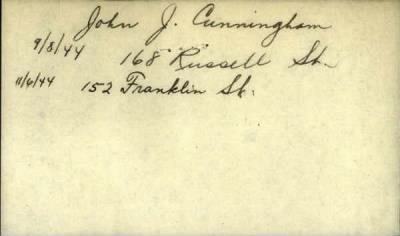 John J. Cunningham
9/8/44 168 Russell St.
11/6/44 152 Franklin St.